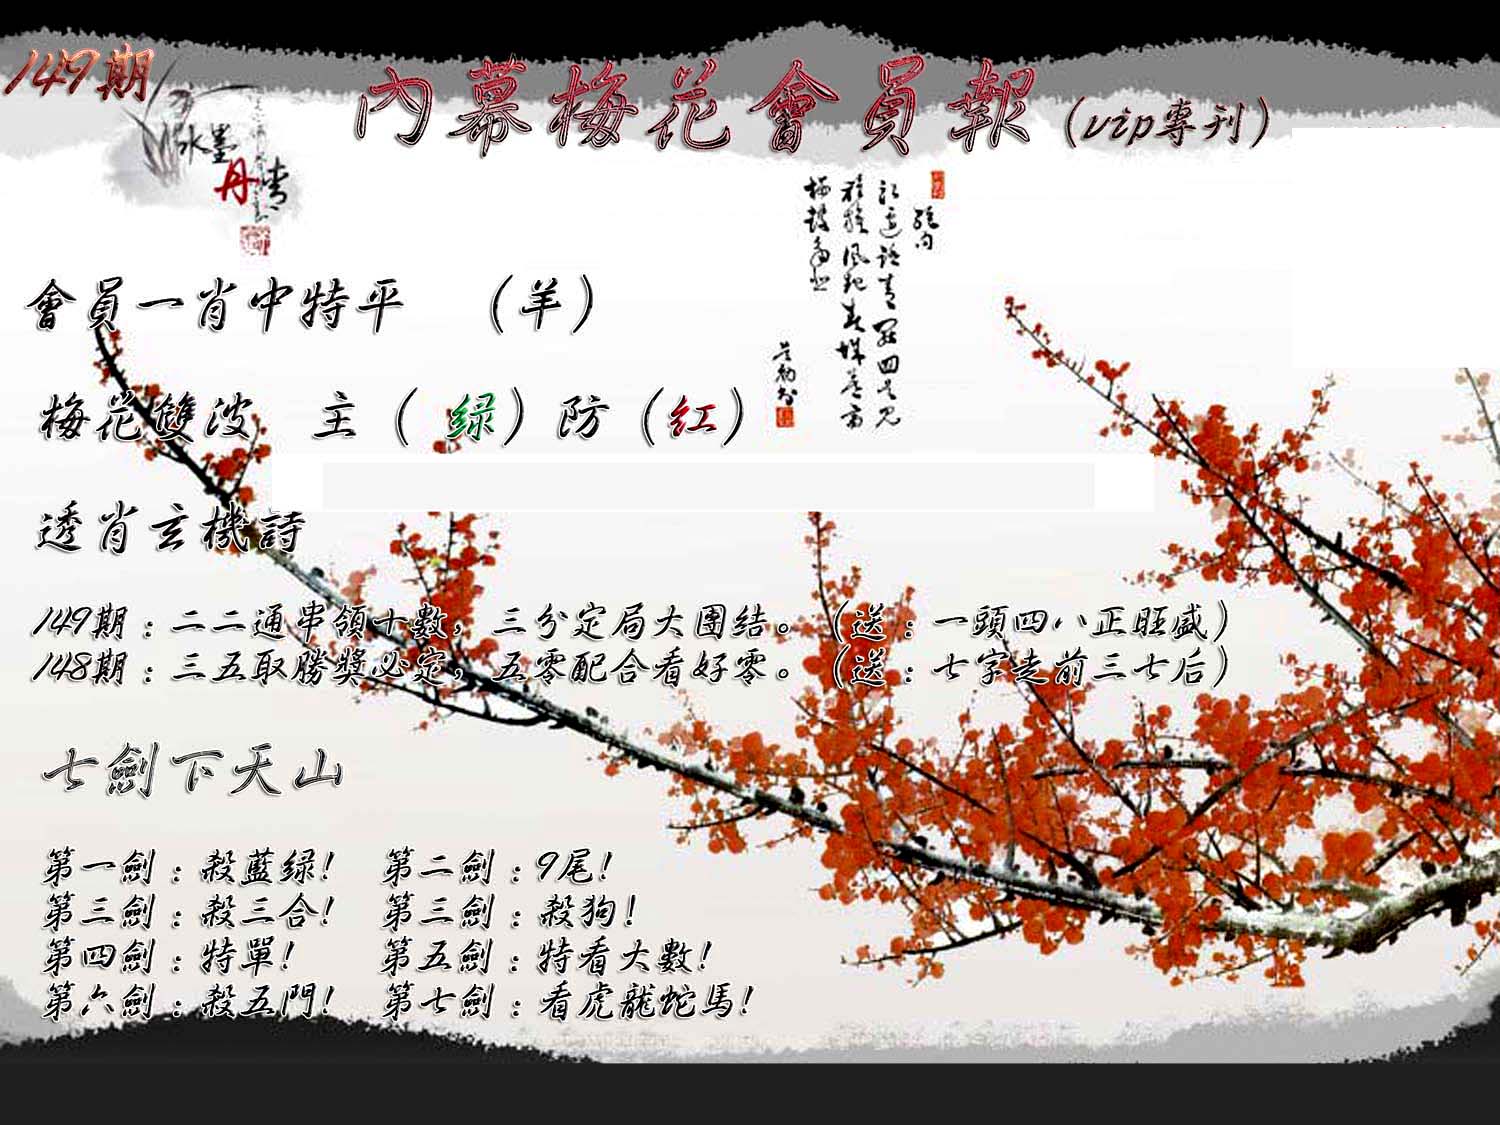 149期
內幕梅花會員報（vip專刊）
水墨
丹青
絕句
會員一肖中特平　（羊）
梅花雙波　主（绿）防（红）
透肖玄機詩
149期：二二通串領十數，三分定局大團结。（送：一頭四八正旺盛）
148期：三五取勝獎必定，五零配合看好零。（送：七字走前三七后）
七劍下天山
第一劍：殺藍绿！　第二劍：9尾！
第三劍：殺三合！　第三劍：殺狗！
第四劍：特單！　第五劍：特看大數！
第六劍：殺五門！　第七劍：看虎龍蛇馬！